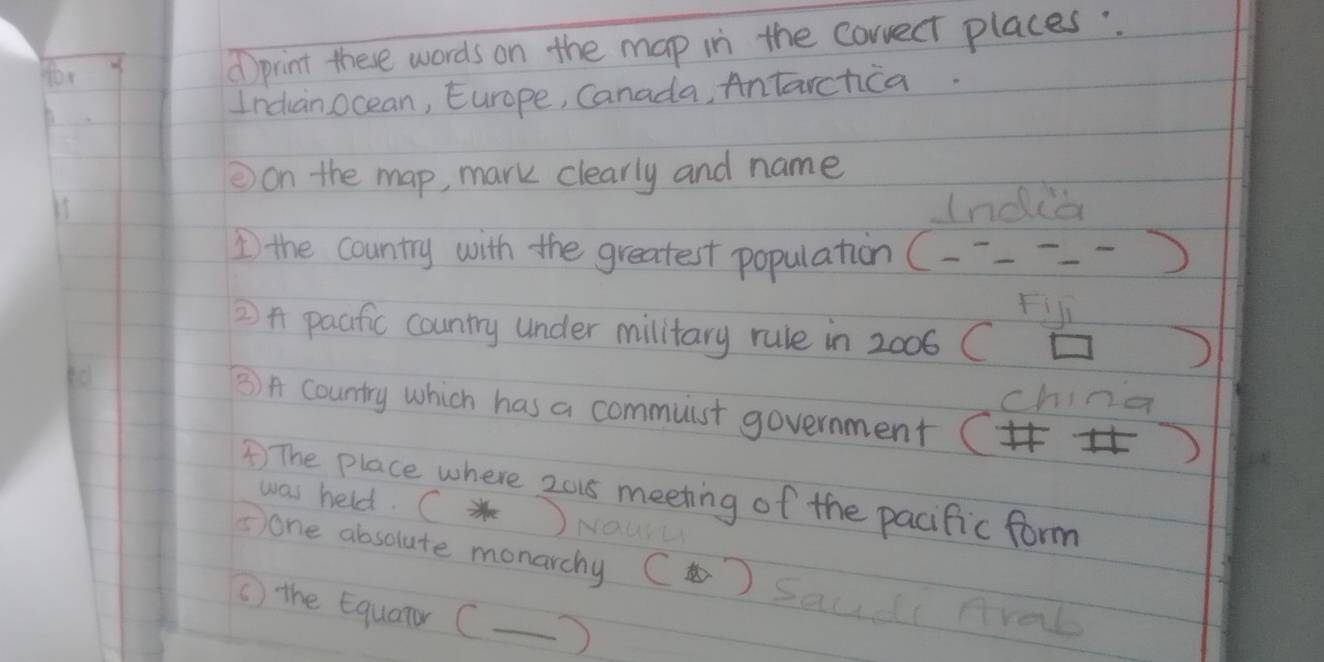 for
ⓓ print these words on the map in the correct places:
Indian Ocean, Europe, Canada, Antarctica.
ⓔ on the map, mark clearly and name
India
① the country with the greatest population (- - - - - -)
Fiji
② A pacific country under military rule in 2006 ( □ )
China
③ A country which has a commuist government (# #)
④ The place where meeting of the pacific form
was held. ( * ) Nauru
⑤ one absolute monarchy ( ☆ ) Saudi Arab
⑥ the Equator ( — )